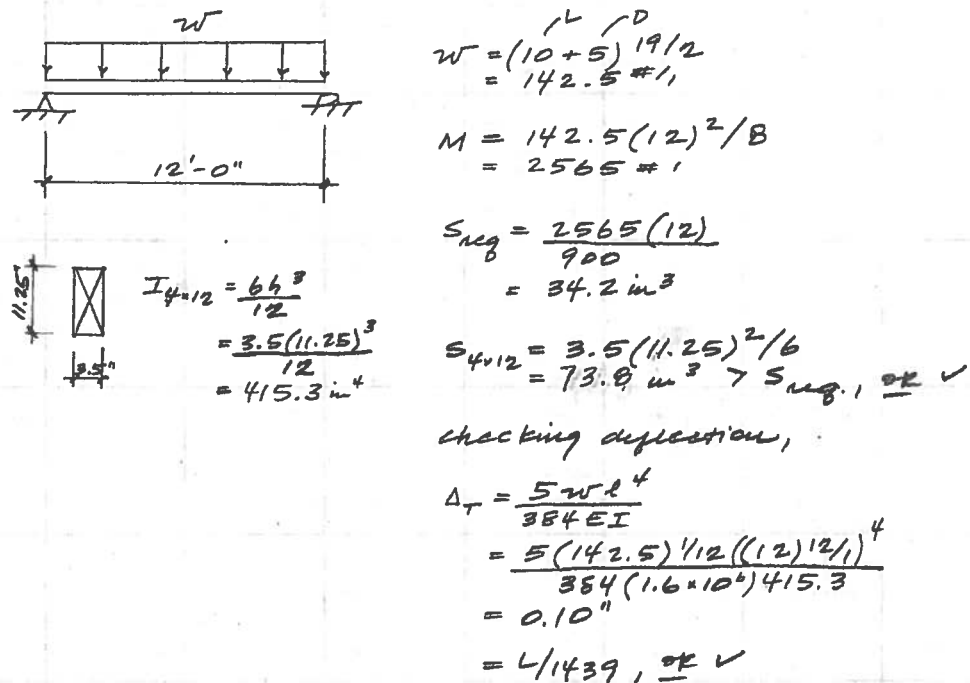 w
12'-0"
11.25"
3.5"
I4x12 = bh³/12
= 3.5(11.25)³/12
= 415.3 in⁴
L D
w = (10 + 5) 19/2
= 142.5 #/'
M = 142.5(12)²/8
= 2565 #'
Sreq = 2565(12)/900
= 34.2 in³
S4x12 = 3.5(11.25)²/6
= 73.8 in³ > Sreq., OK ✓
checking deflection,
ΔT = 5wl⁴/384EI
= 5(142.5)1/12((12)12/1)⁴/384(1.6x10⁶)415.3
= 0.10"
= L/1439, OK ✓